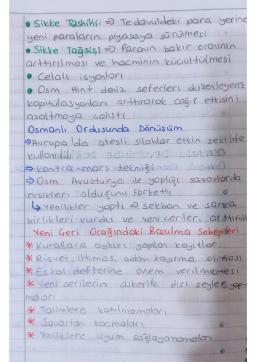 • Sikke Tashihi ⇒ Tedavüldeki para yerine
yeni paraların piyasaya sürülmesi
• Sikke Tağşişi ⇒ Paranın bakır oranının
arttırılması ve hacminin küçültülmesi
• Celali isyanları
• Osm Hint deniz seferleri düzenleyerek
kapitülasyonları arttırarak coğ. etkisini
azaltmaya çalıştı
Osmanlı Ordusunda Dönüşüm
⇒ Avrupa'da ateşli silahlar etkin şekilde
kullanıldı
⇒ kontra-marş tekniği
⇒ Osm Avusturya ile yaptığı savaşlarda
eksikleri olduğunu farketti
↳ Yenilikler yaptı ⇒ sekban ve sarıca
birlikleri kurdu ve yeniçeriler arttırıldı
Yeniçeri Ocağındaki Bozulma Sebepleri
* Kurallara aykırı yapılan kayıtlar
* Rüşvet, iltimas, adam kayırma olması
* Eşkal defterine önem verilmemesi
* Yeniçerilerin askerlik dışı şeyler yap-
maları
* Talimlere katılmamaları
* Savaştan kaçmaları
* Yeniliklere uyum sağlayamamaları